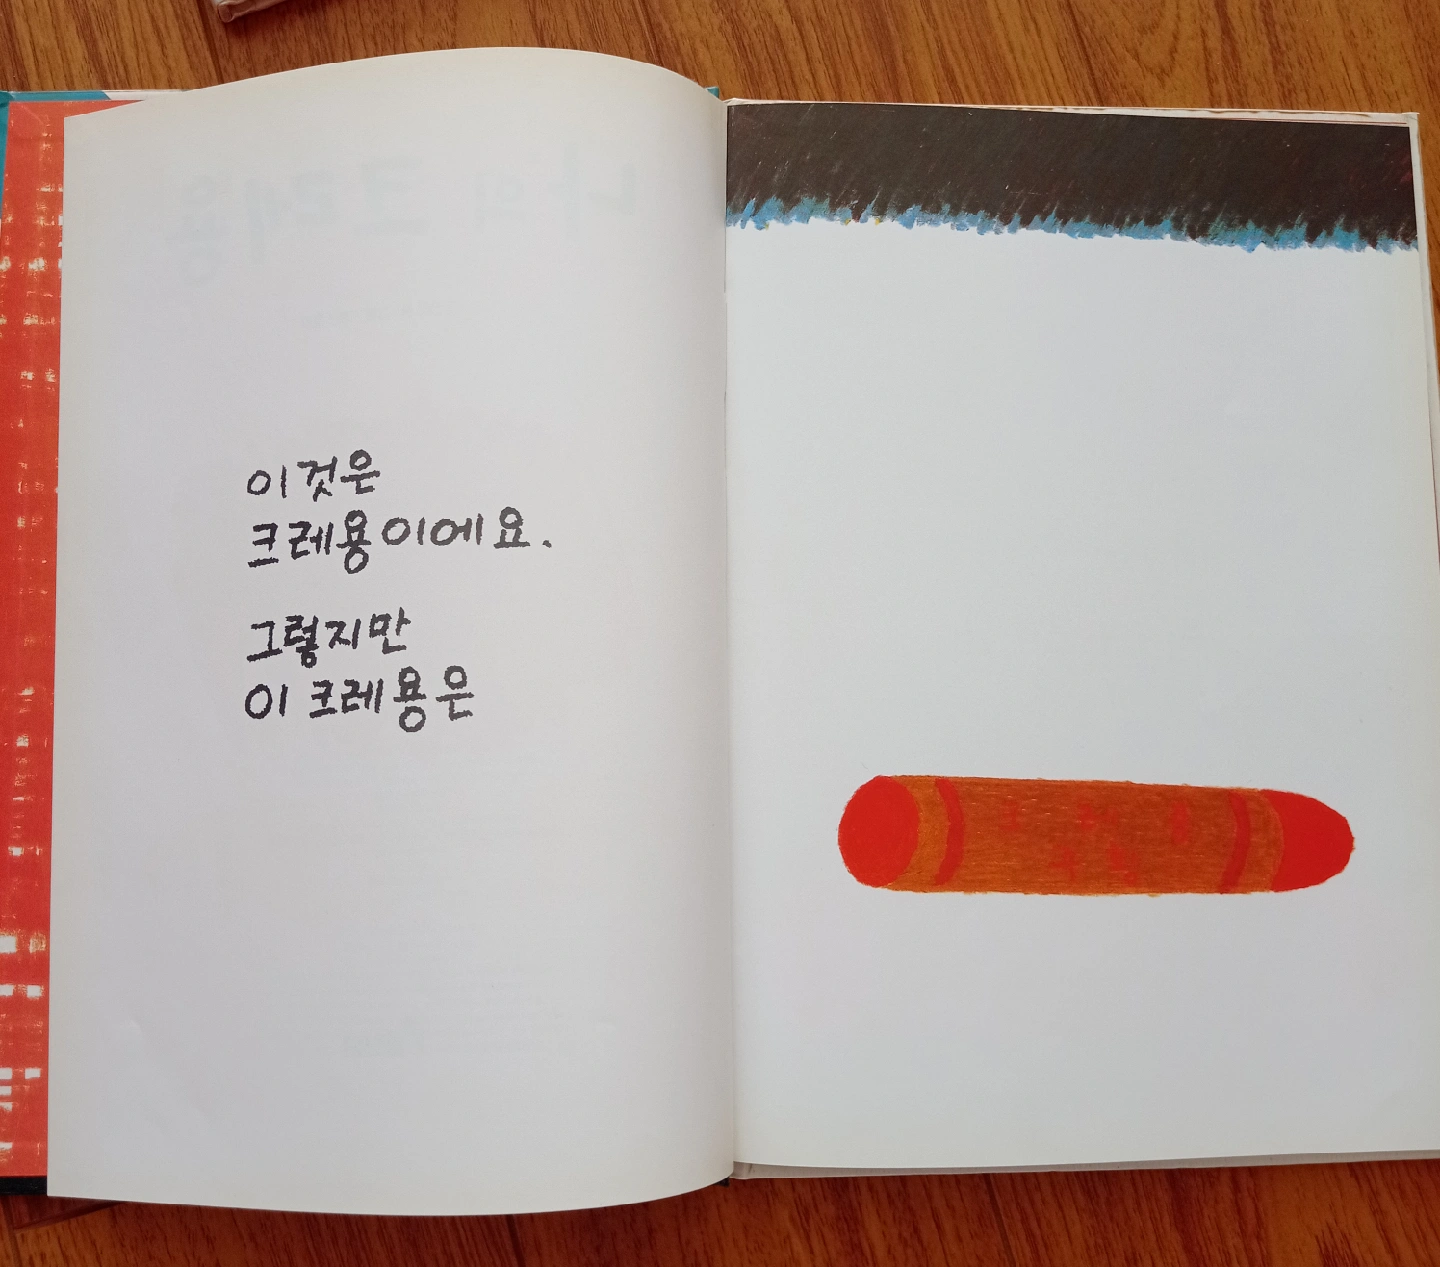 이것은
크레용이에요.
그렇지만
이 크레용은